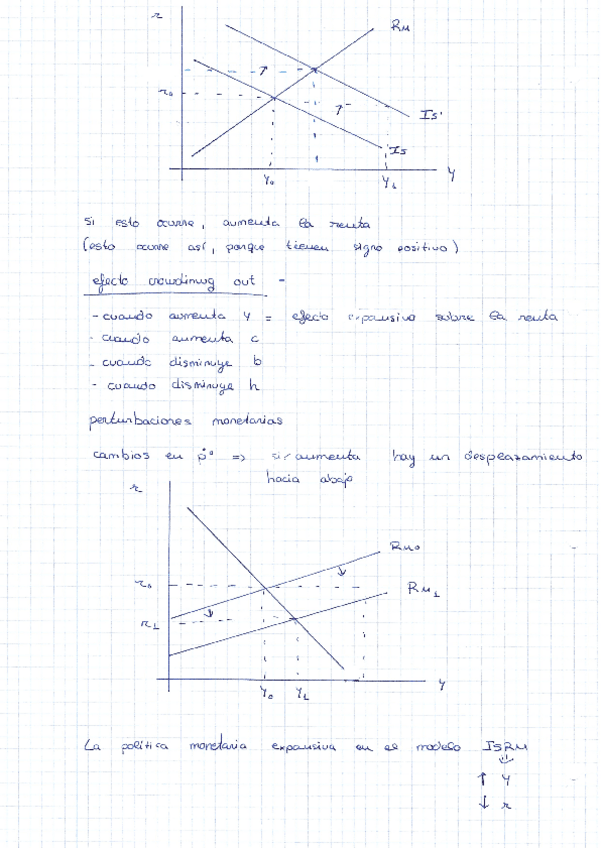 r
RM
r₀
IS'
IS
Y₀
Y₁
Y
Si esto ocurre, aumenta la renta
(esto ocurre así, porque tienen signo positivo)
efecto crowdimug out -
- cuando aumenta Y = efecto expansivo sobre la renta
- cuando aumenta c
- cuando disminuye b
- cuando disminuye h
perturbaciones monetarias
cambios en ṗ⁰ => si aumenta hay un desplazamiento
hacia abajo
r
RM₀
r₀
RM₁
r₁
Y₀
Y₁
Y
La política monetaria expansiva en el modelo ISRM
↑ Y
↓ r